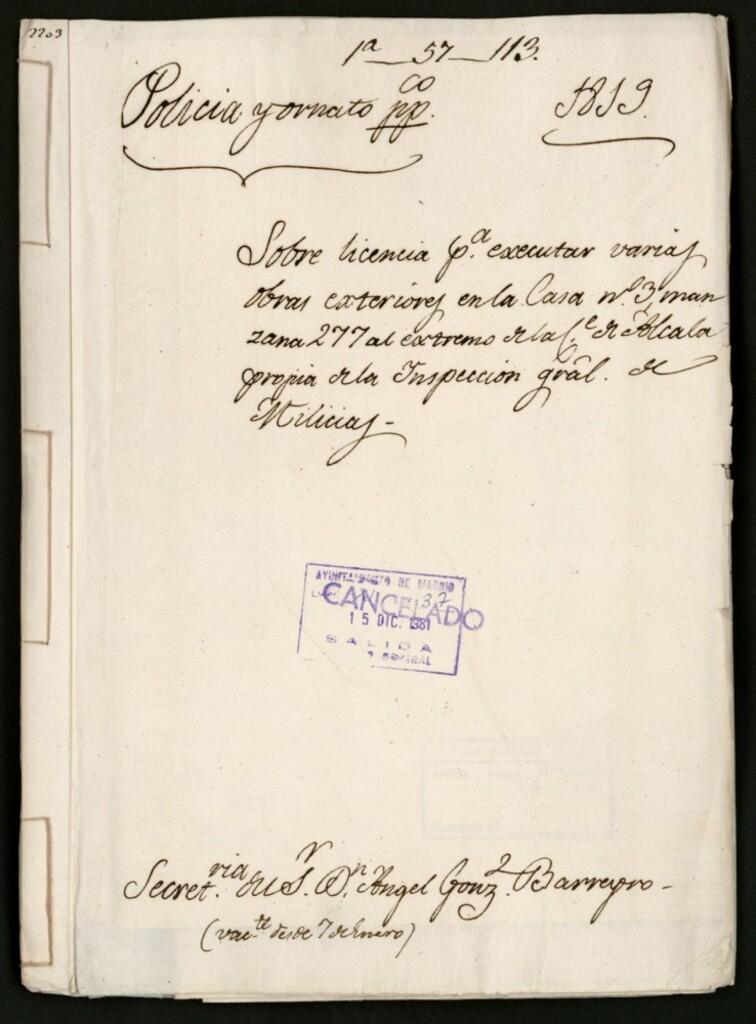 2203
1ª 57 113.
Policia y ornato pp.co 1819.
Sobre licencia p.ª executar varias
obras exteriores en la Casa n.º 3, man
zana 277 al extremo de la C.e de Alcala
propia de la Inspeccion gràl. de
Milicias-
AYUNTAMIENTO DE MADRID
CANCELADO
37
15 DIC. 1981
SALIDA
GENERAL
Secret.ria del S.r D.n Angel Gonz.z Barreyro-
(vac.te desde 7 de Enero)